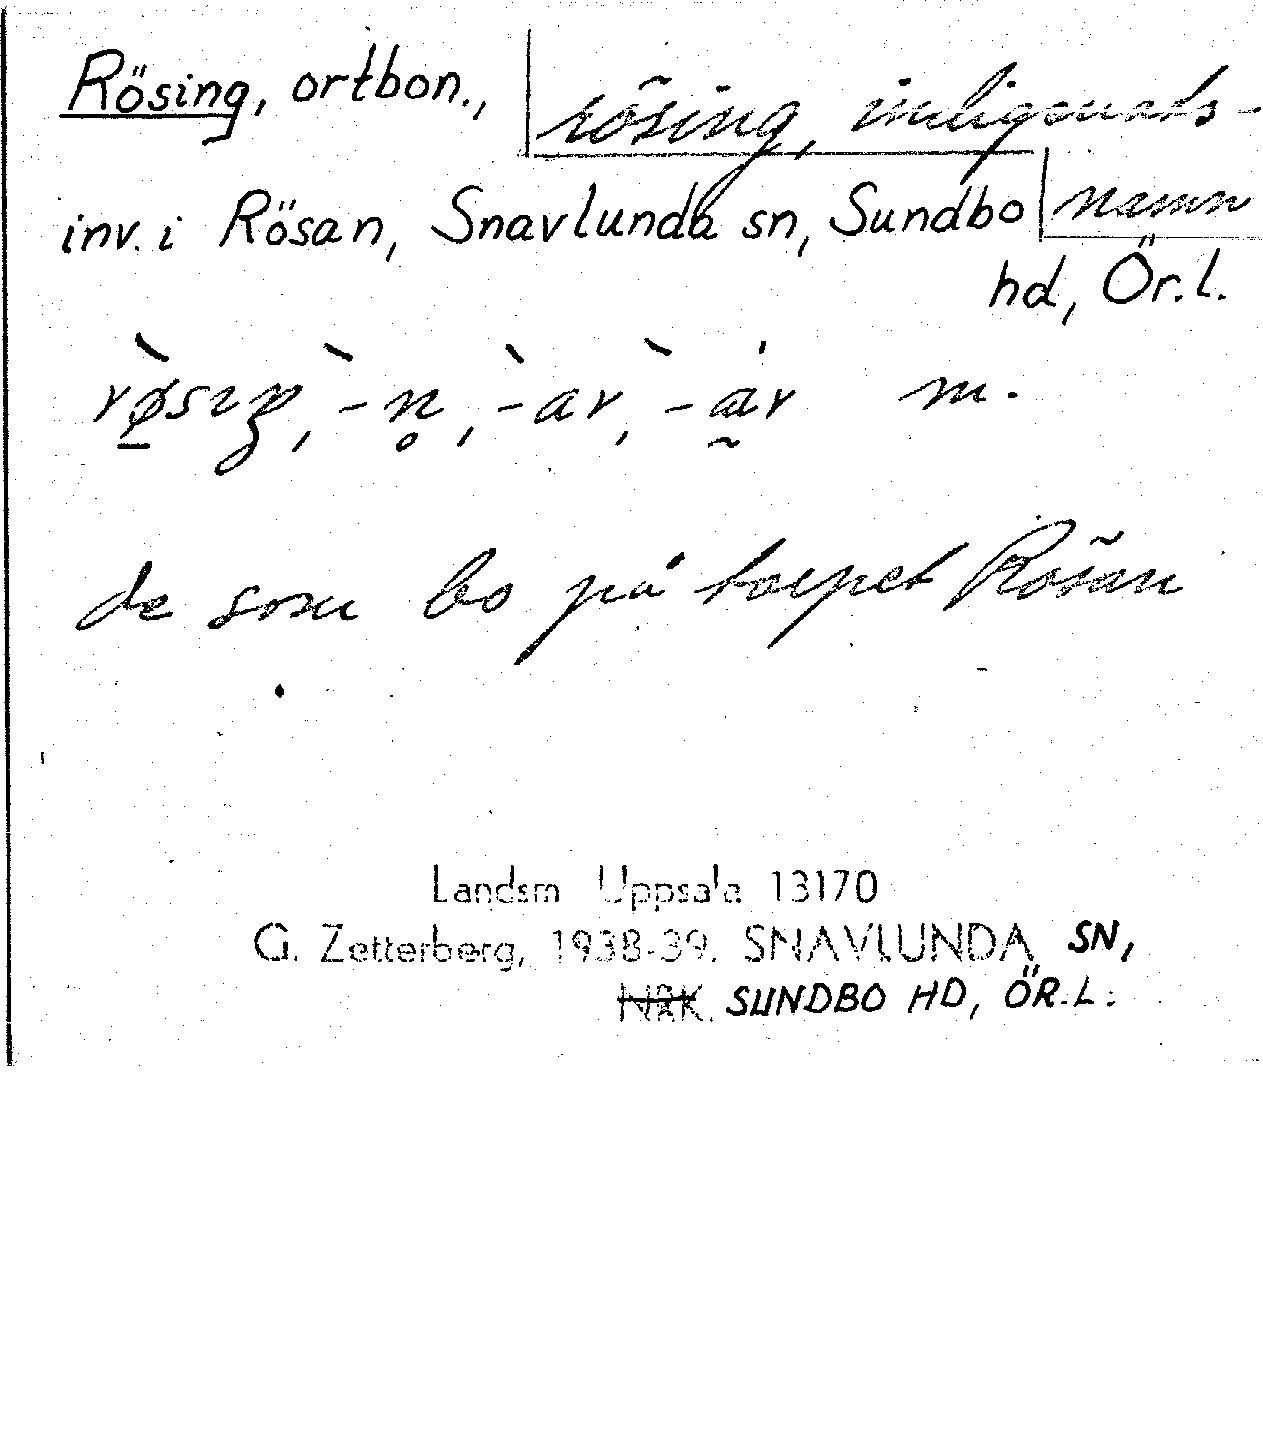 Rösing, ortbon., rösing, inligenats-
inv. i Rösan, Snavlunda sn, Sundbo namn
hd, Ör.l.
-ar, m.
de som bo på torpet Rösan
Landsm Uppsala 13170
G. Zetterberg, 1938-39. SNAVLUNDA SN,
NRK. SUNDBO HD, ÖR.L.